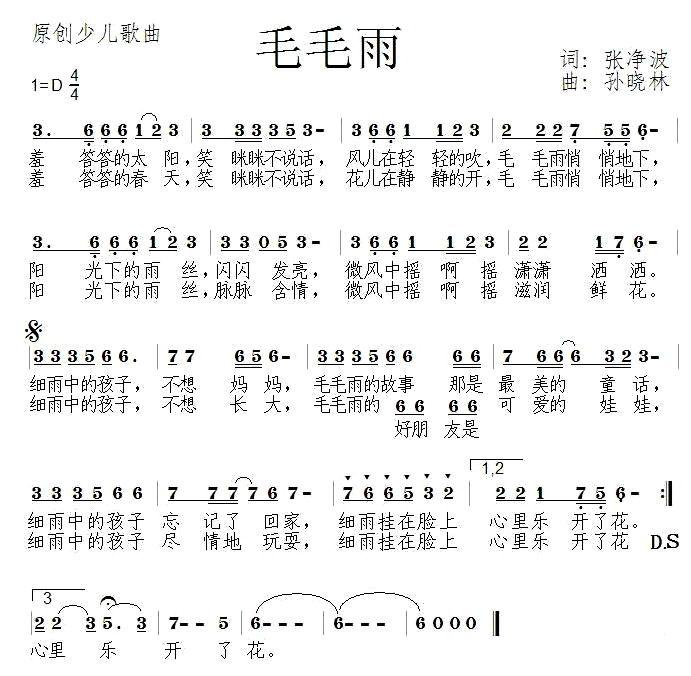 原创少儿歌曲
毛毛雨
词: 张净波
1=D 4/4
曲: 孙晓林
3. 6 6 6 1 2 3 | 3 3 3 3 5 3 - | 3 6 6 1 1 2 3 | 2 2 2 2 7 5 5 6 - |
羞 答答的太 阳,笑 眯眯不说话, 风儿在轻 轻的吹,毛 毛雨悄 悄地下,
羞 答答的春 天,笑 眯眯不说话, 花儿在静 静的开,毛 毛雨悄 悄地下,
3. 6 6 6 1 2 3 | 3 3 0 5 3 - | 3 6 6 1 1 2 3 | 2 2 1 7 6 - |
阳 光下的雨 丝,闪闪 发亮, 微风中摇 啊 摇 潇潇 洒 洒。
阳 光下的雨 丝,脉脉 含情, 微风中摇 啊 摇 滋润 鲜 花。
3 3 3 5 6 6. | 7 7 6 6 - | 3 3 3 5 6 6 6 | 7 6 6 3 2 3 - |
细雨中的孩子, 不想 妈 妈, 毛毛雨的故事 那是 最 美的 童 话,
细雨中的孩子, 不想 长 大, 毛毛雨的 6 6 6 6 可 爱的 娃 娃,
好朋 友是
1,2
3 3 3 5 6 6 | 7 7 7 7 6 7 - | 7 6 6 5 3 2 | 2 2 1 7 5 6 - :|
细雨中的孩子 忘 记了 回家, 细雨挂在脸上 心里乐 开了花。
细雨中的孩子 尽 情地 玩耍, 细雨挂在脸上 心里乐 开了花。 D.S
3
2 2 3 5. 3 | 7 - - 5 | 6 - - - | 6 - - - | 6 0 0 0 ‖
心里 乐 开 了 花。